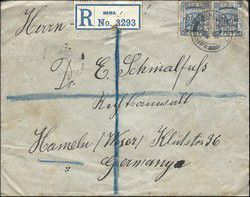 HAIFA.
R No. 3293
Herrn
Dr. E. Schmalfuß
Rechtsanwalt
Hameln (Weser) Klütstr. 36
Germany